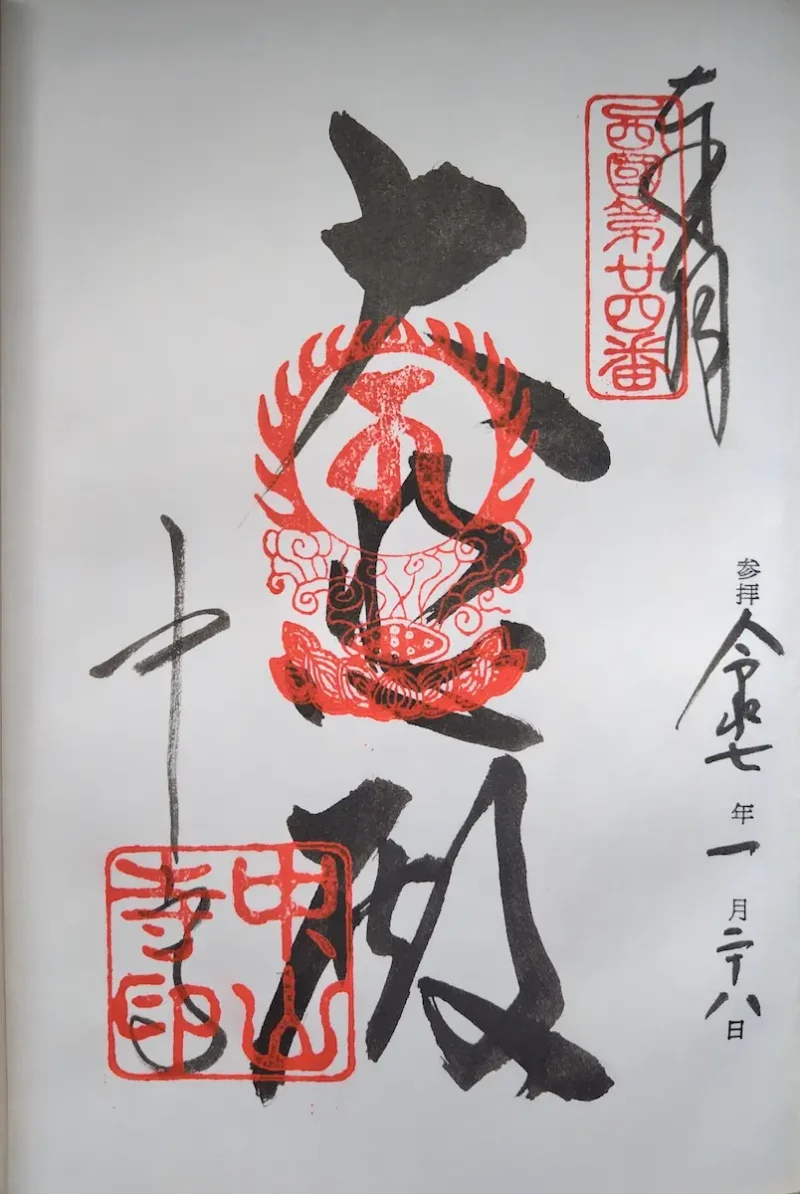 奉拝
西國第廿四番
参拝 令和七年一月二十八日
大悲殿
中山寺
中山寺印